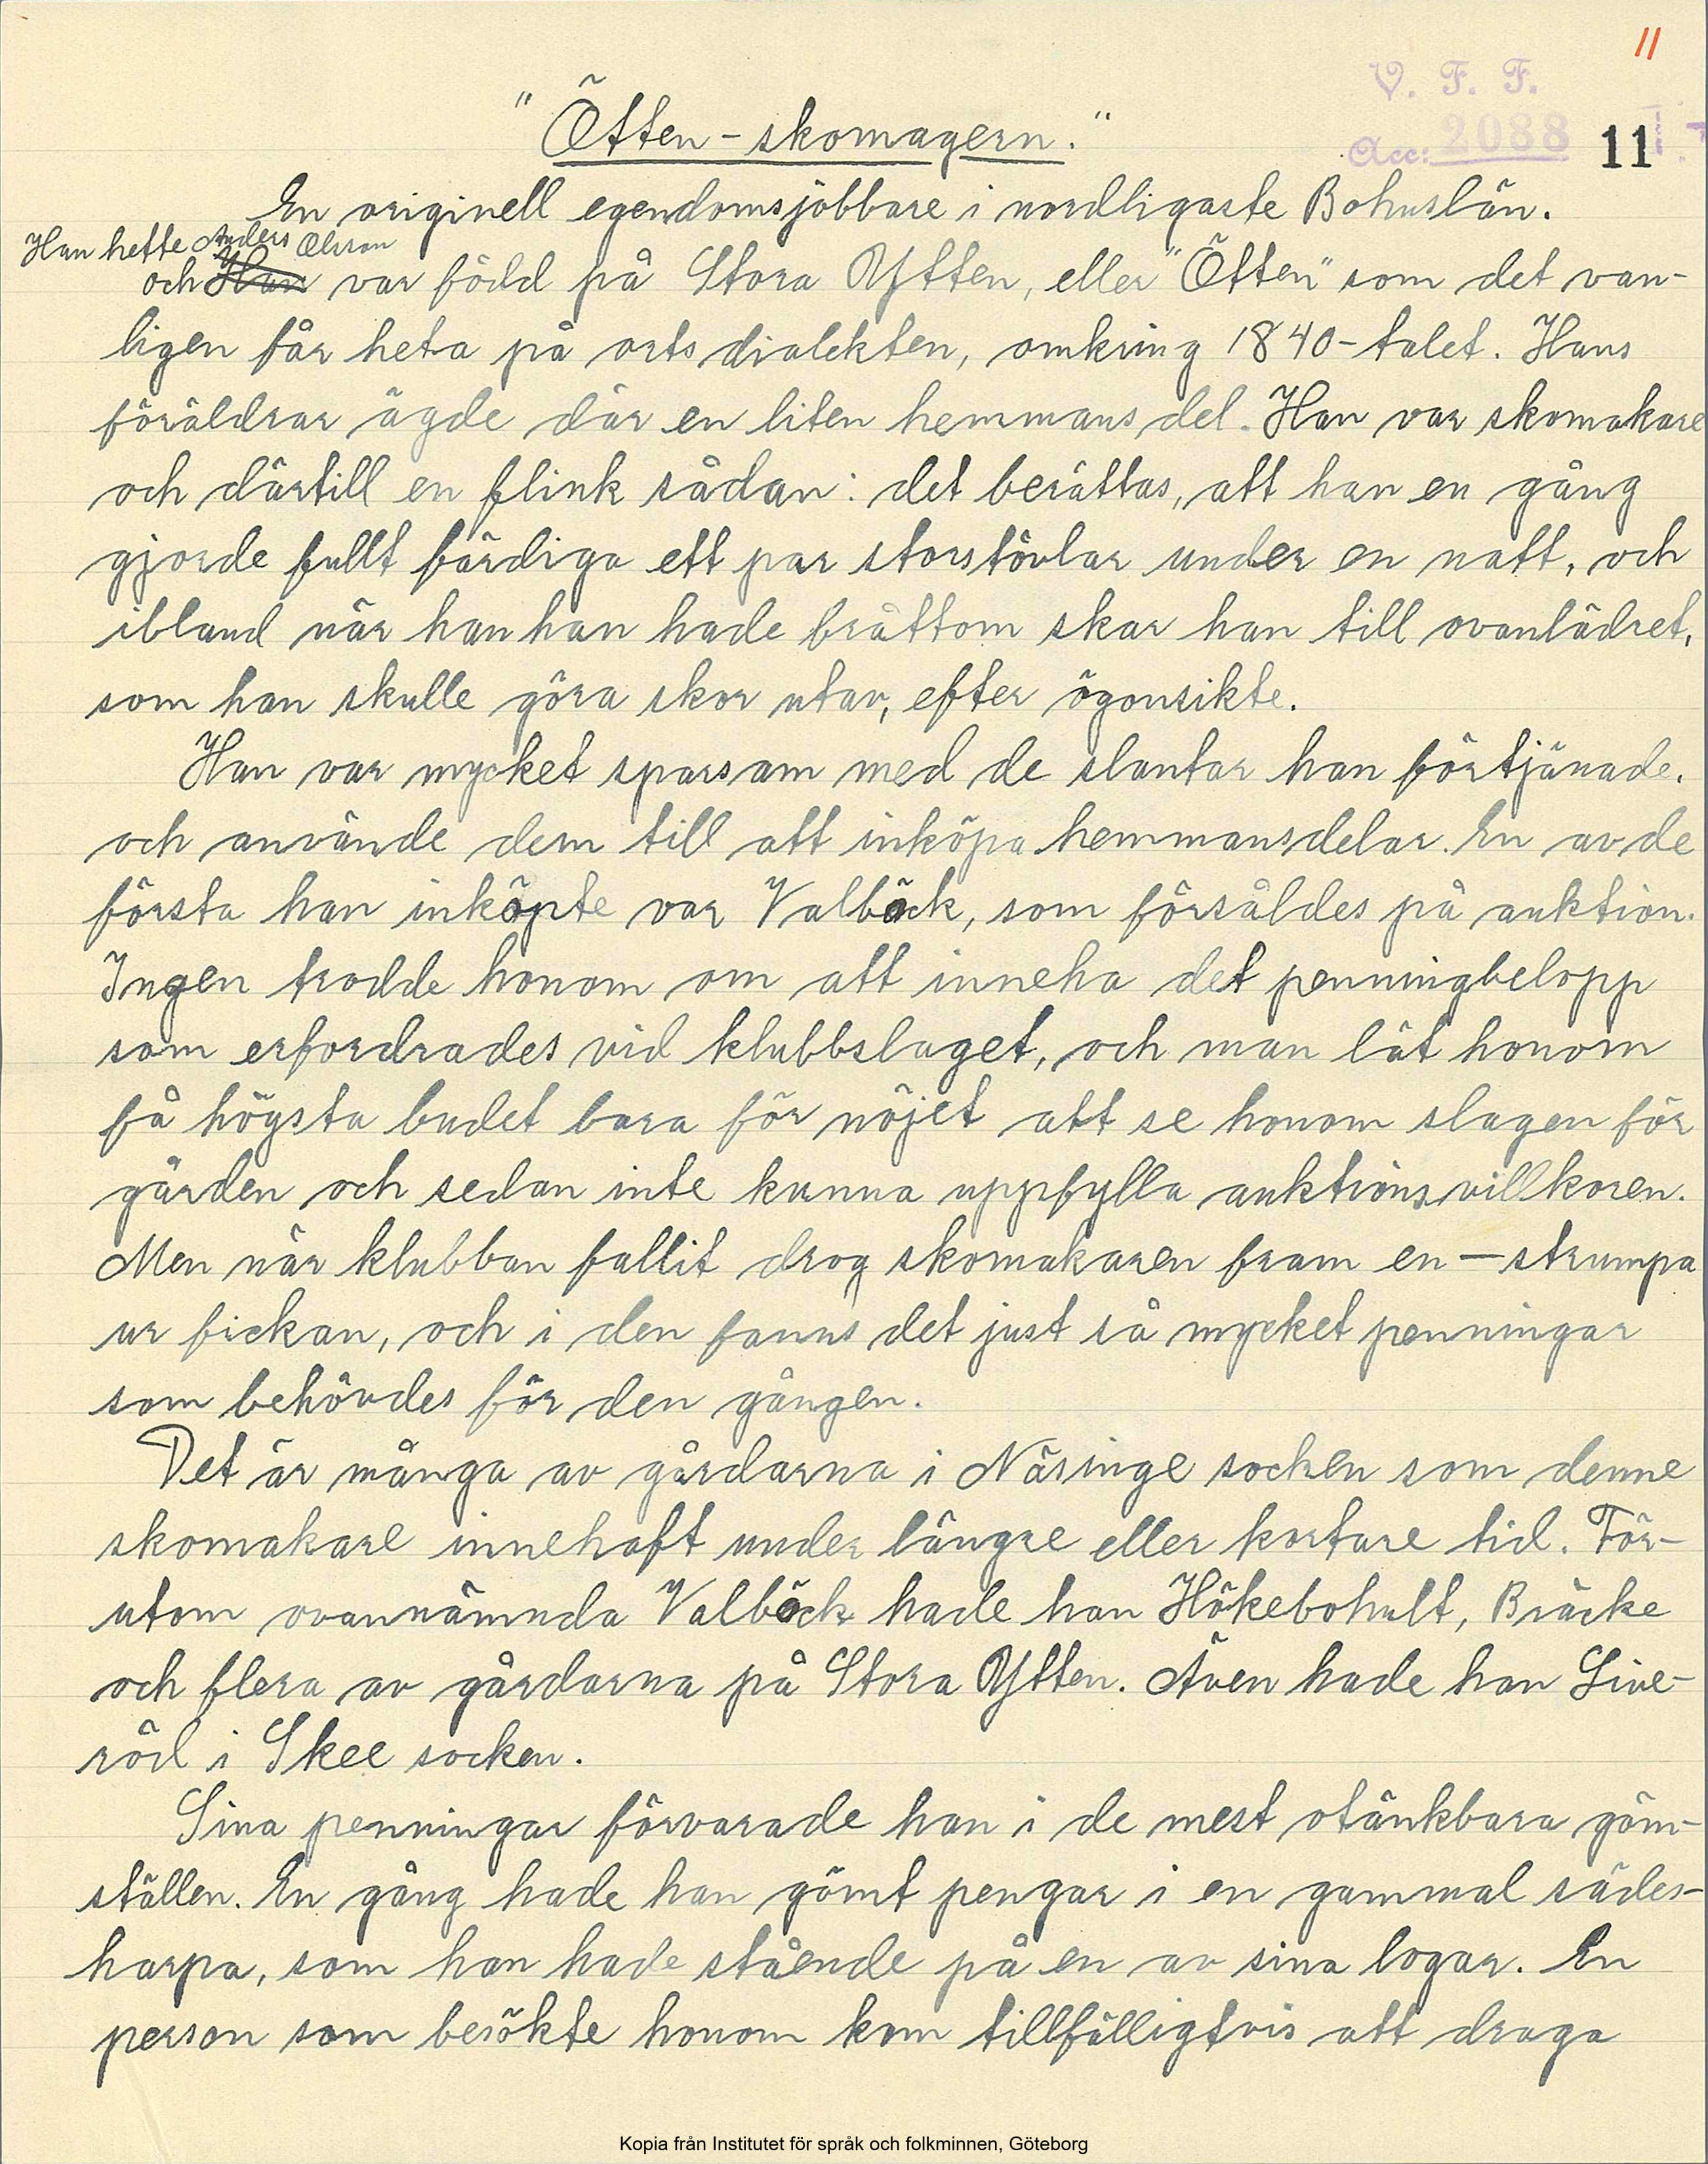 11
V. F. F.
Acc: 2088 11
"Ötten-skomagern."
En originell egendomsjobbare i nordligaste Bohuslän.
Han hette Anders Olsson
och Han var född på Stora Ytten, eller "Ötten" som det van-
ligen får heta på ortsdialekten, omkring 1840-talet. Hans
föräldrar ägde där en liten hemmansdel. Han var skomakare
och därtill en flink sådan: det berättas, att han en gång
gjorde fullt färdiga ett par storstövlar under en natt, och
ibland när han han hade bråttom skar han till ovanlädret,
som han skulle göra skor utav, efter ögonsikte.
Han var mycket sparsam med de slantar han förtjänade,
och använde dem till att inköpa hemmansdelar. En av de
första han inköpte var Valböck, som försåldes på auktion.
Ingen trodde honom om att inneha det penningbelopp
som erfordrades vid klubbslaget, och man lät honom
få högsta budet bara för nöjet att se honom slagen för
gården och sedan inte kunna uppfylla auktionsvillkoren.
Men när klubban fallit drog skomakaren fram en – strumpa
ur fickan, och i den fanns det just så mycket penningar
som behövdes för den gången.
Det är många av gårdarna i Näsinge socken som denne
skomakare innehaft under längre eller kortare tid. För-
utom ovannämnda Valböck hade han Hökebohult, Bräcke
och flera av gårdarna på Stora Ytten. Även hade han Live-
röd i Skee socken.
Sina penningar förvarade han i de mest otänkbara göm-
ställen. En gång hade han gömt pengar i en gammal sädes-
harpa, som han hade stående på en av sina logar. En
person som besökte honom kom tillfälligtvis att draga
Kopia från Institutet för språk och folkminnen, Göteborg